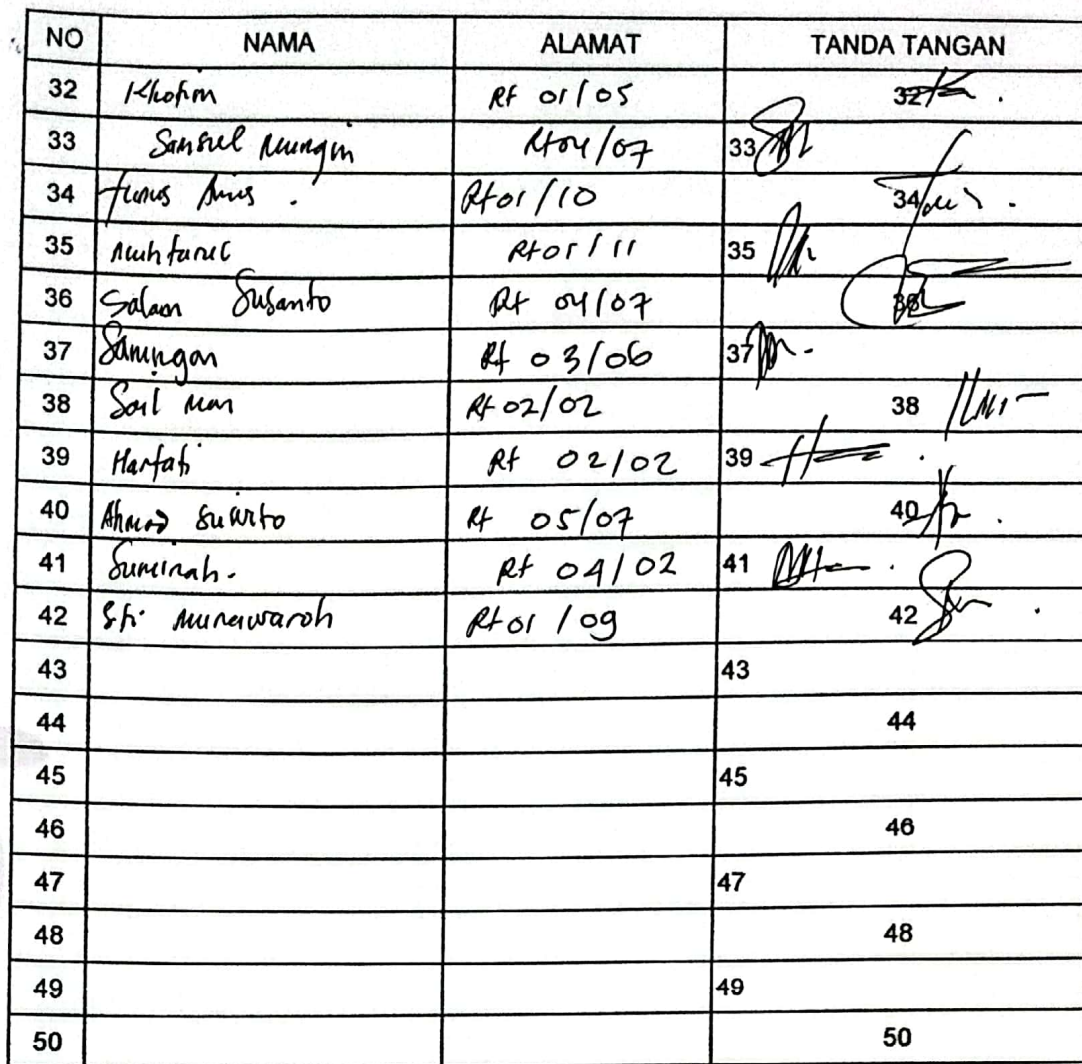 NO NAMA ALAMAT TANDA TANGAN
32 Khotim Rt 01/05 32
33 Samsul Mungin Rt 04/07 33
34 Anis . Rt 01/10 34
35 Rt 01/11 35
36 Salam Susanto Rt 04/07 36
37 Saningan Rt 03/06 37
38 Sail man Rt 02/02 38
39 Hartati Rt 02/02 39
40 Ahmad Rt 05/07 40
41 Suminah. Rt 04/02 41
42 Sti munawaroh Rt 01/09 42
43 43
44 44
45 45
46 46
47 47
48 48
49 49
50 50